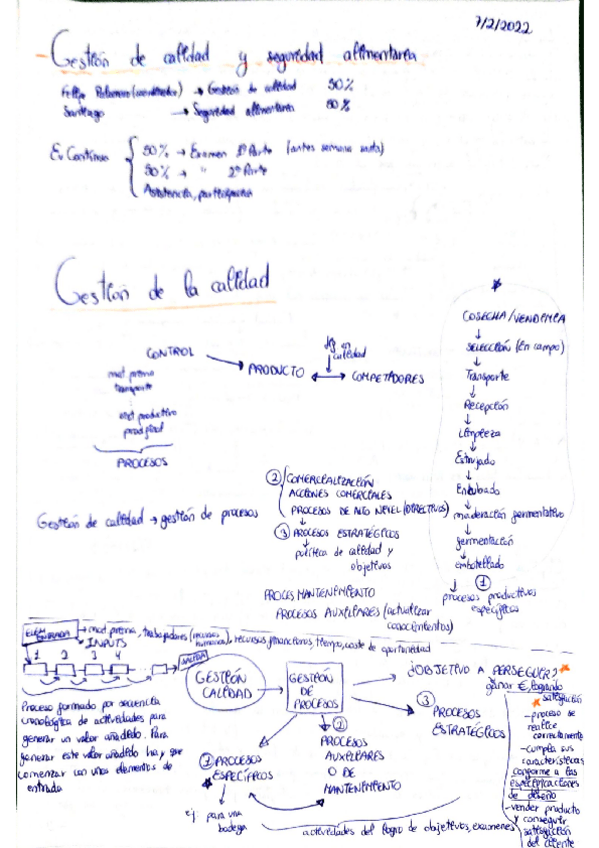 7/2/2022
Gestión de calidad y seguridad alimentaria
Felipe Palomero (coordinador) → Gestión de calidad 50%
Santiago → Seguridad alimentaria 50%
Ev. Continua
50% → Examen 1ª Parte (antes semana santa)
50% → " 2ª Parte
Asistencia, participación
Gestión de la calidad
CONTROL
mat prima
transporte
mat productivo
prod final
PROCESOS
→ PRODUCTO ↔ COMPETADORES
calidad
*
COSECHA/VENDIMIA
↓
SELECCIÓN (en campo)
↓
Transporte
↓
Recepción
↓
Limpieza
↓
Estrujado
↓
Encubado
↓
maceración fermentativa
↓
fermentación
↓
embotellado
↓ ①
procesos productivos
específicos
Gestión de calidad → gestión de procesos
② COMERCIALIZACIÓN
ACCIONES COMERCIALES
PROCESOS DE ALTO NIVEL (DIRECTIVOS)
③ PROCESOS ESTRATÉGICOS
↓
política de calidad y
objetivos
PROCES MANTENIMIENTO
PROCESOS AUXILIARES (actualizar
conocimientos)
ENTRADA → mat prima, trabajadores (recursos humanos), recursos financieros, tiempo, coste de oportunidad
INPUTS
1 2 3 4
SALIDA
Proceso formado por secuencia
cronológica de actividades para
generar un valor añadido. Para
generar este valor añadido hay que
comenzar con unos elementos de
entrada
GESTIÓN
CALIDAD
GESTIÓN
DE
PROCESOS
① PROCESOS
ESPECÍFICOS
*
ej para una
bodega
②
PROCESOS
AUXILIARES
O DE
MANTENIMIENTO
③ PROCESOS
ESTRATÉGICOS
¿OBJETIVO A PERSEGUIR?
ganar €, logrando
satisfacción
- proceso se
realice
correctamente
- cumpla sus
características
conforme a las
especificaciones
de diseño
- vender producto
y conseguir
satisfacción
del cliente
actividades del logro de objetivos, exámenes